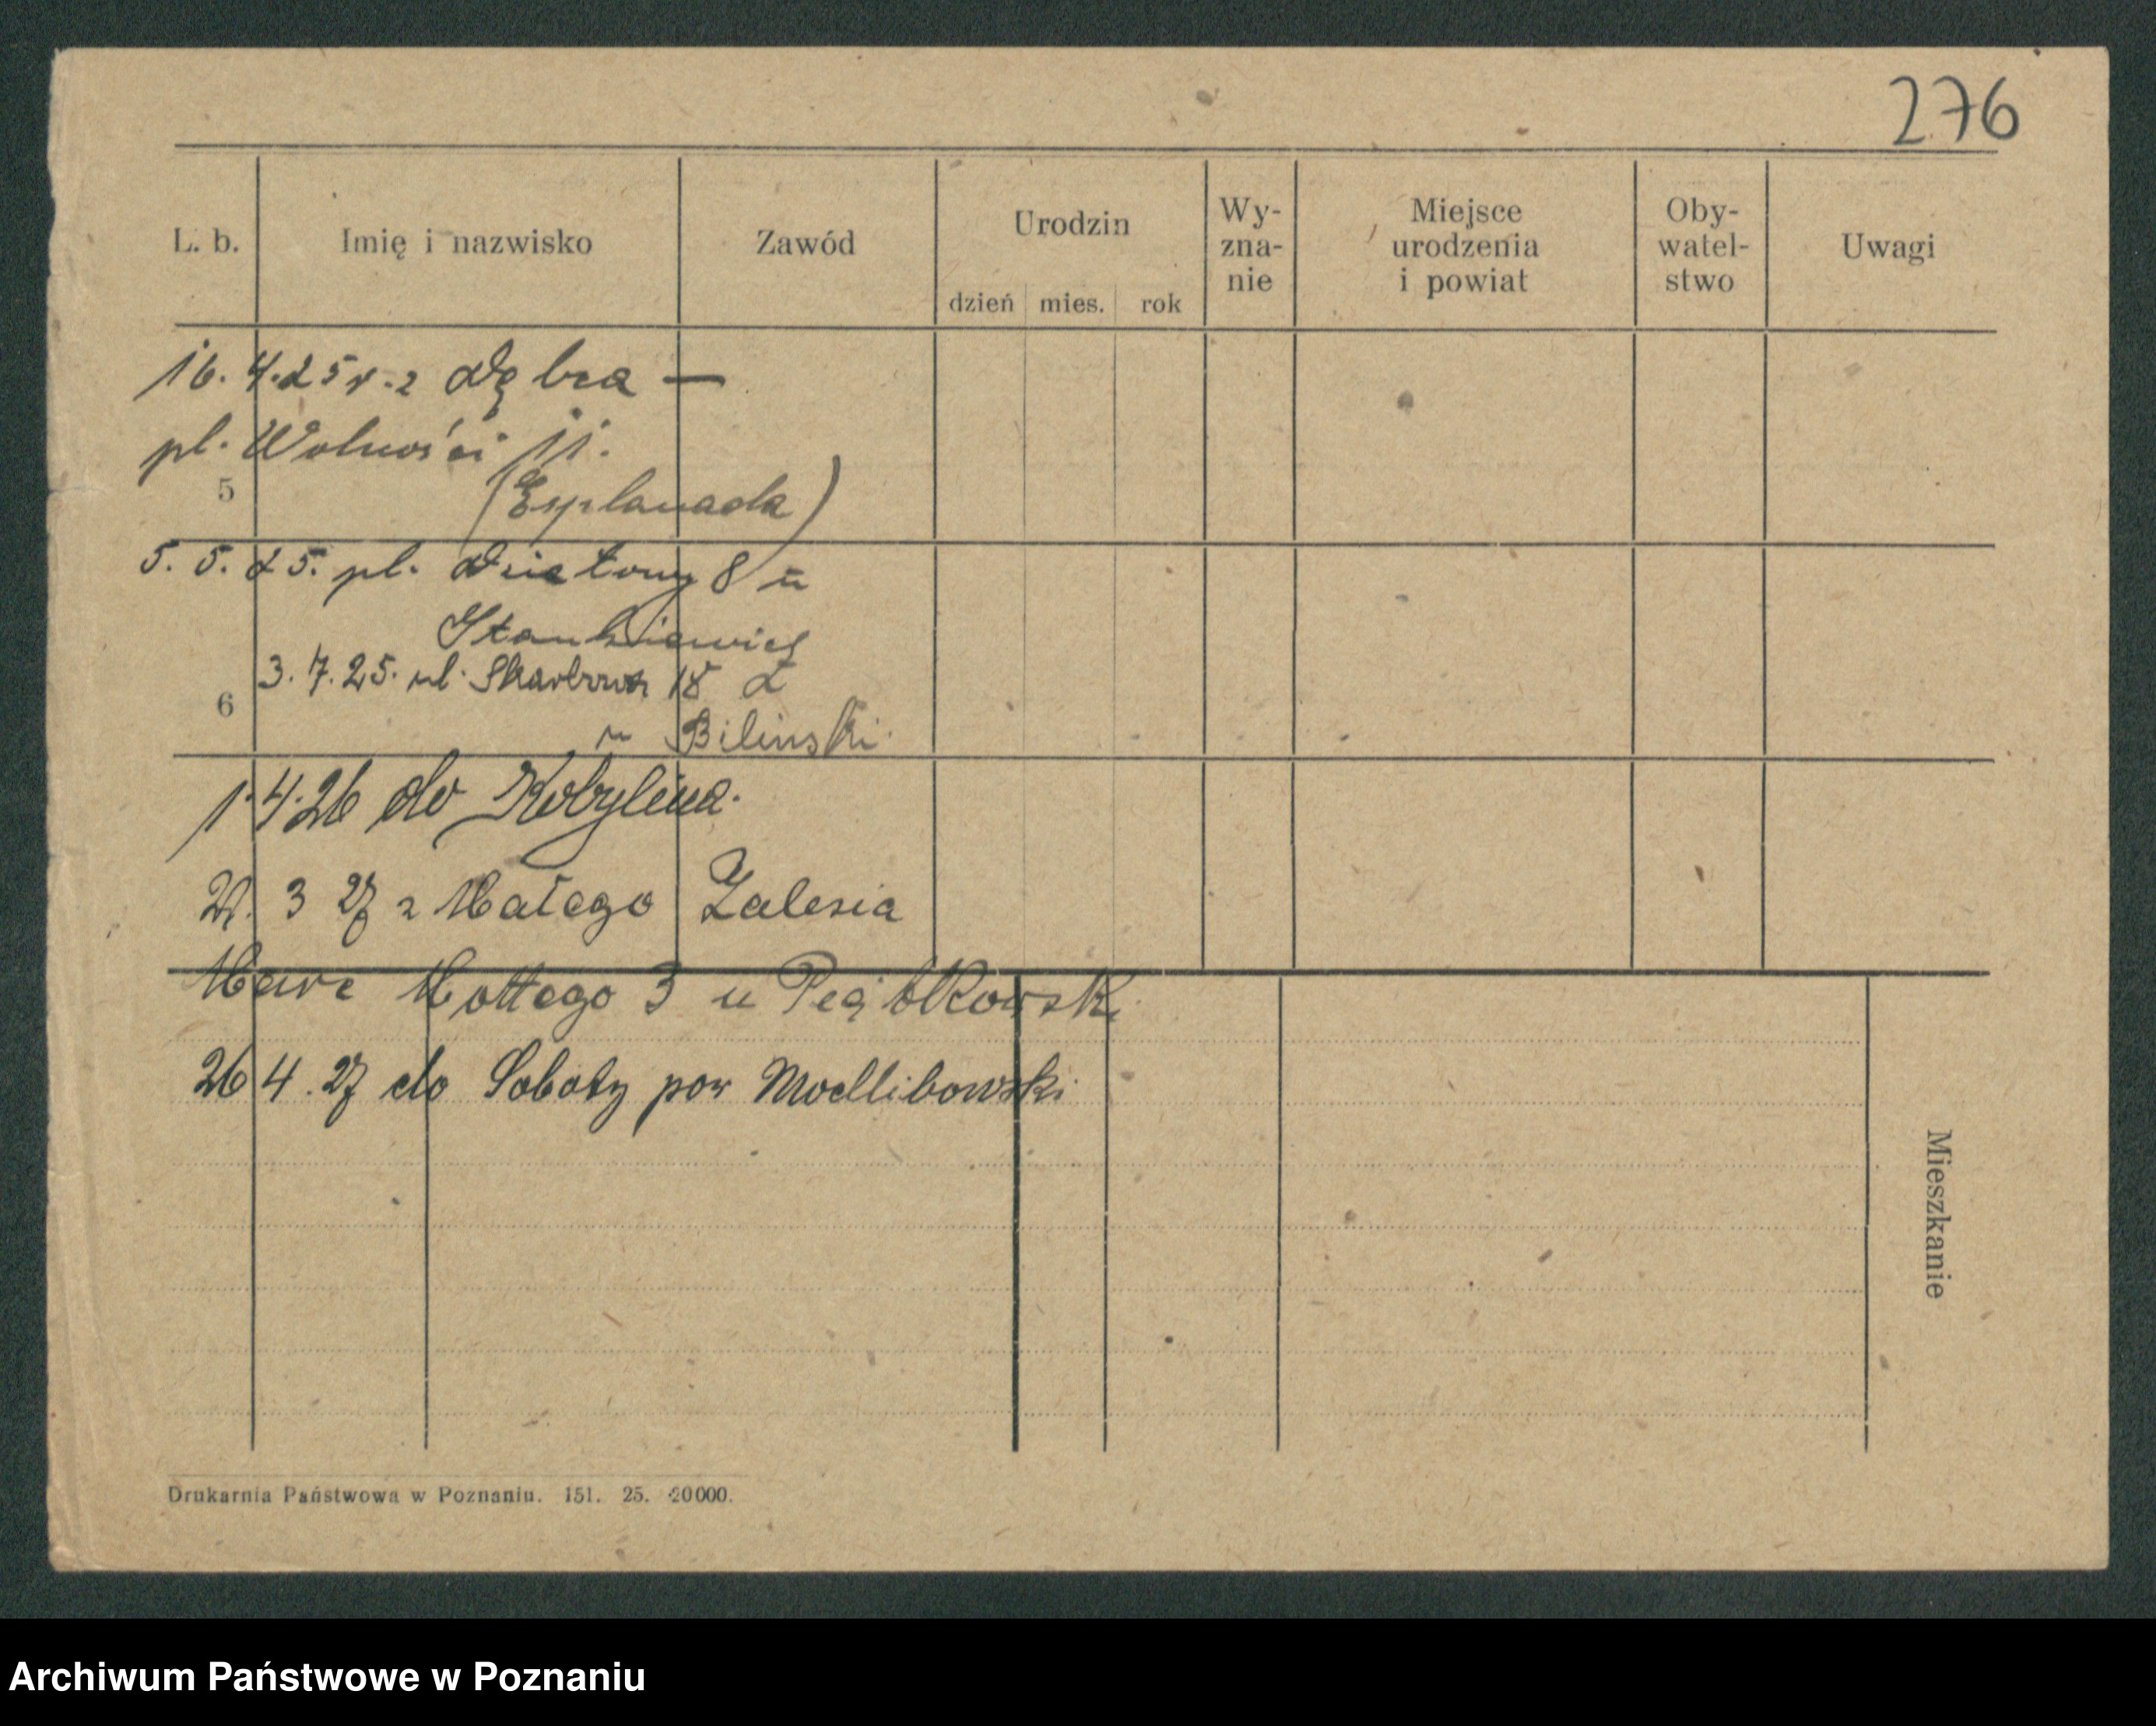 276
L. b. Imię i nazwisko Zawód Urodzin dzień mies. rok Wy-zna-nie Miejsce urodzenia i powiat Oby-watel-stwo Uwagi
16. 4. 25 r. z Dębca —
pl. Wolności 11.
5
(Esplanada)
5. 5. 25. pl. Działowy 8 u
Stankiewicz
3. 7. 25. ul. Skarbowa 18
6
u Bilinski
1. 4. 26 do Kobylina.
3 27 z Małego Zalesia
Marc Mottego 3 u Piątkowski
26 4. 27 do Soboty pow Modlibowski
Mieszkanie
Drukarnia Państwowa w Poznaniu. 151. 25. 20000.
Archiwum Państwowe w Poznaniu